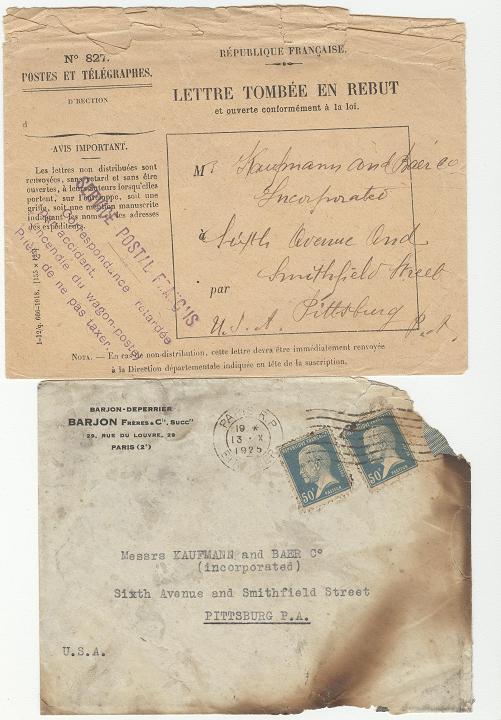 Nº 827.
POSTES ET TÉLÉGRAPHES.
D'RECTION
d
AVIS IMPORTANT.
Les lettres non distribuées sont
renvoyées, sans retard et sans être
ouvertes, à leurs auteurs lorsqu'elles
portent, sur l'enveloppe, soit une
griffe, soit une mention manuscrite
indiquant les noms et les adresses
des expéditeurs.
RÉPUBLIQUE FRANÇAISE.
LETTRE TOMBÉE EN REBUT
et ouverte conformément à la loi.
M Kaufmann and Baer Co
Incorporated
à Sixth Avenue and
Smithfield Street
par Pittsburg
U.S.A. P.A.
SERVICE POSTAL FRANÇAIS
Correspondance retardée
accident.
Incendie du wagon-postal
Prière de ne pas taxer.
NOTA. — En cas de non-distribution, cette lettre devra être immédiatement renvoyée
à la Direction départementale indiquée en tête de la suscription.
BARJON-DEPERRIER
BARJON FRÈRES & Cie, Succrs
29, RUE DU LOUVRE, 29
PARIS (2e)
PARIS R.P.
19 *
13 - X
1925
RÉPUBLIQUE FRANÇAISE
50c
PASTEUR
50c
PASTEUR
Messrs KAUFMANN and BAER Cº
(incorporated)
Sixth Avenue and Smithfield Street
PITTSBURG P.A.
U.S.A.